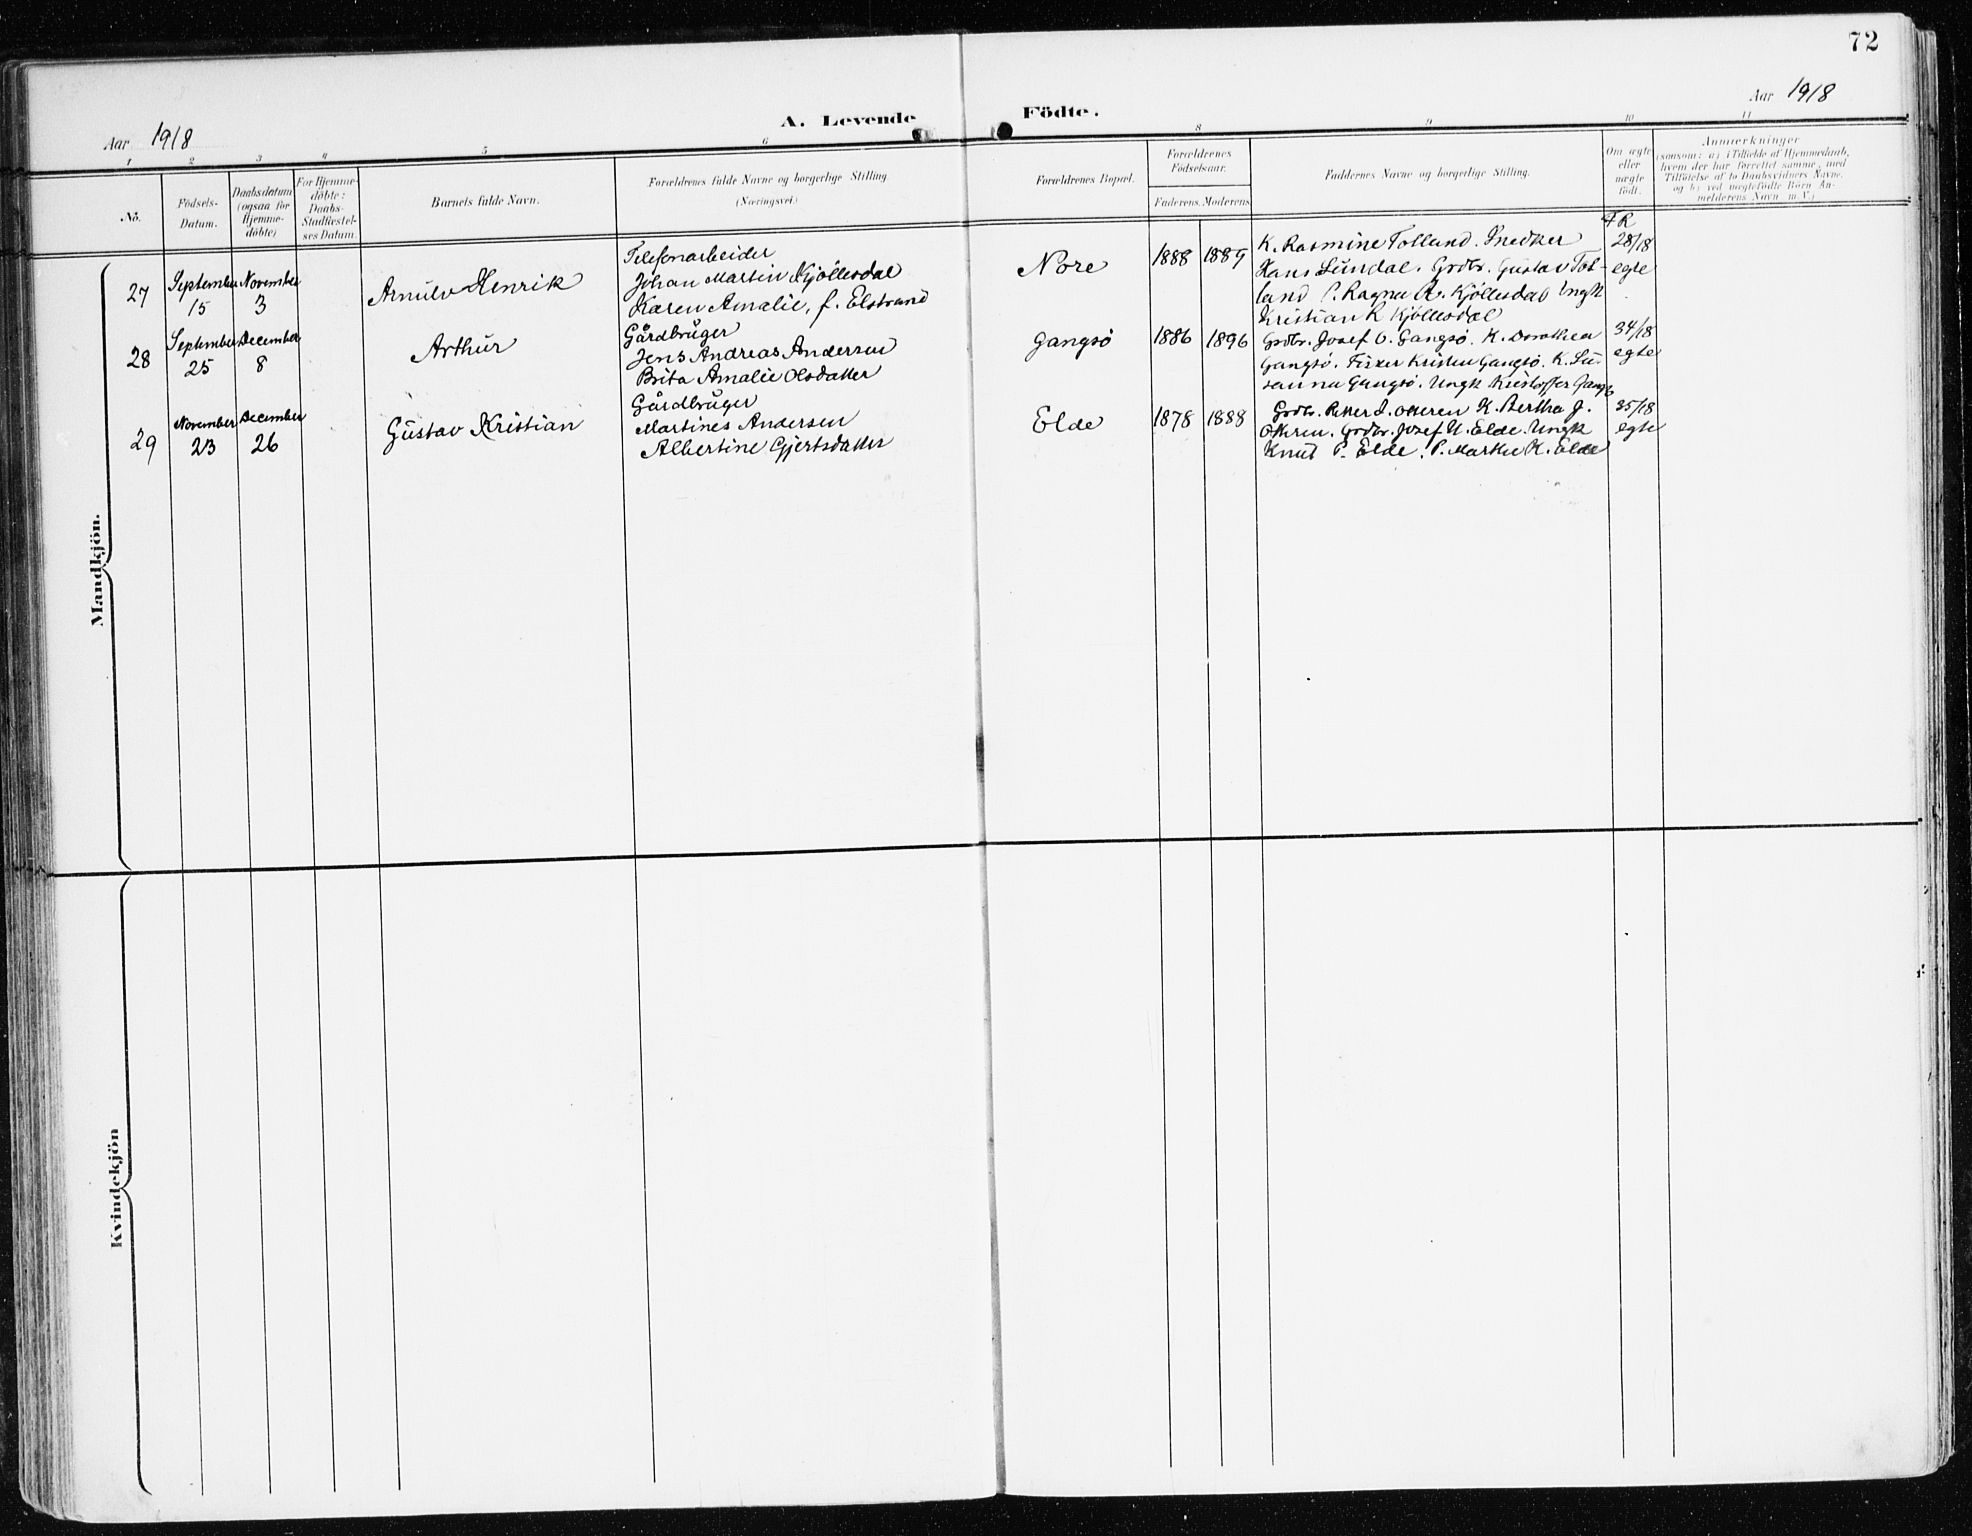 72
Aar 1918
A. Levende Födte.
Aar 1918
1 2 3 4 5 6 8 9 10 11
No.
Födsels-
Datum.
Daabsdatum
(ogsaa for
Hjemme-
döbte)
For Hjemme-
döbte:
Daabs-
Stadfæstel-
ses Datum
Barnets fulde Navn.
Forældrenes fulde Navne og borgerlige Stilling.
(Næringsvei.)
Forældrenes Bopæl.
Forældrenes
Födselsaar.
Faderens. Moderens.
Faddernes Navne og borgerlige Stilling.
Om ægte
eller
uægte
födt.
Anmærkninger
(saasom: a) i Tilfælde af Hjemmedaab,
hvem der har forrettet samme, med
Tilföielse af to Daabsvidners Navne,
og b) ved uægtefödte Börn An-
melderens Navn m. V.)
Mandkjön.
27
September
15
November
3
Arnulv Henrik
Telefonarbeider
Johan Martin Kjöllesdal
Karen Amalie, f. Elstrand
Nore
1888 1889
K. Rasmine Tolland. Snedker
Hans Lundal. Grdbr. Gustav Tol-
land P. Ragna R. Kjöllesdal Ungk
Kristian R Kjöllesdal
FR
28/18
egte
28
September
25
December
8
Arthur
Gårdbruger
Jens Andreas Andersen
Brita Amalie Olsdatter
Gangsö
1886 1896
Grdbr. Josef O. Gangsö. K. Dorothea
Gangsö. Fisker Kristen Gangsö. K. Su-
sanna Gangsö. Ungk Kristoffer Gangsö
34/18
egte
29
November
23
December
26
Gustav Kristian
Gårdbruger
Martines Andersen
Albertine Gjertsdatter
Elde
1878 1888
Grdbr. Petter J. Otteren K. Bertha J.
Otteren. Grdbr. Josef U. Elde. Ungk
Knut P. Elde. P. Marthe K. Elde
35/18
egte
Kvindekjön